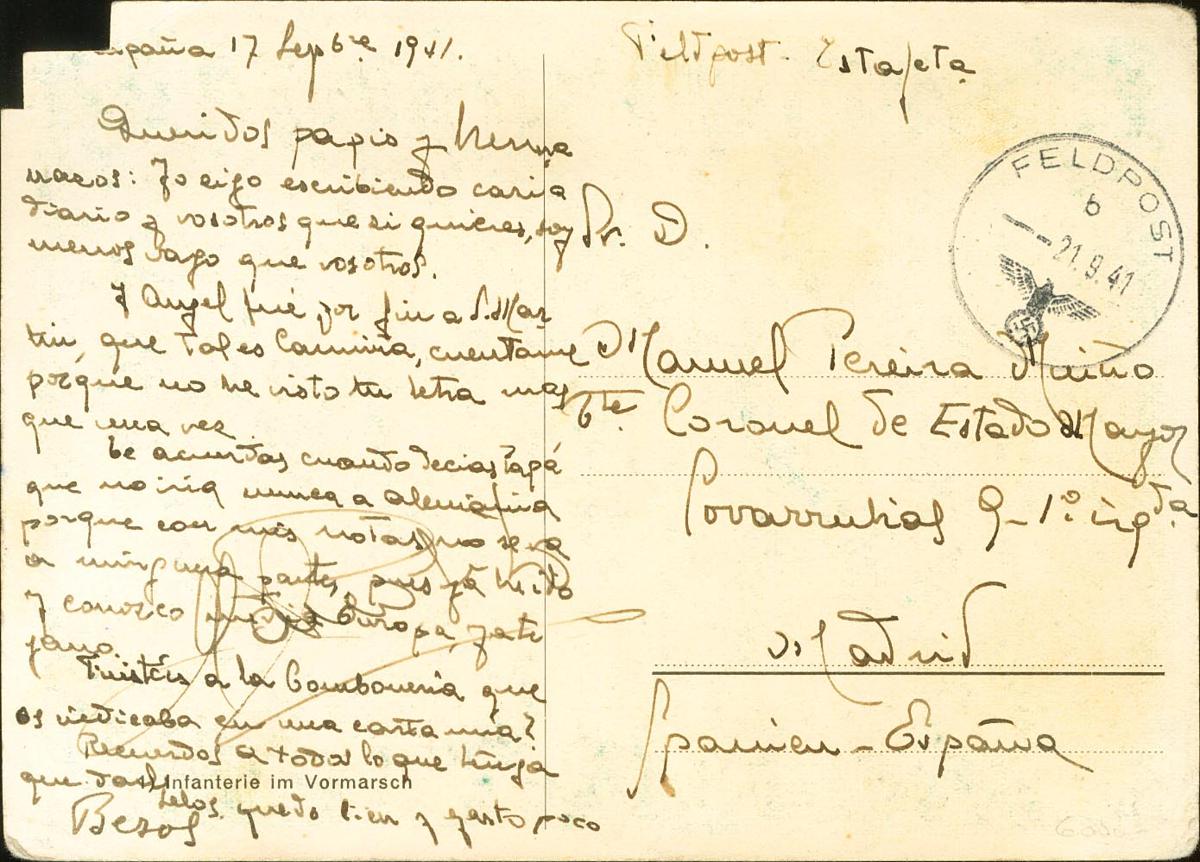 17 Sepbre 1941.
Queridos papis y herma
nacos: Yo sigo escribiendo casia
diario y vosotros que si quieres, soy
menos vago que vosotros.
Y Angel fué por fin a S. Mar
tin, que tal es Camiña, cuentame
porque no he visto tu letra mas
que una vez
te acuerdas cuando decias Papá
que no iria nunca a alemania
porque con mis notas no se va
a ninguna partes, pues ya he ido
y conozco media Europa, ya te
gano.
Fuisteis a la Bomboneria que
os indicaba en una carta mia?
Recuerdos a todos lo que tenga
que
Infanterie im Vormarsch
quedo bien y gasto poco
Besos
Feldpost - Estafeta
FELDPOST
b
21.9.41
Sr. D.
Manuel Pereira Muiño
Tte Coronel de Estado Mayor
Covarrubias 9-1º izqda
Madrid
Spanien - España